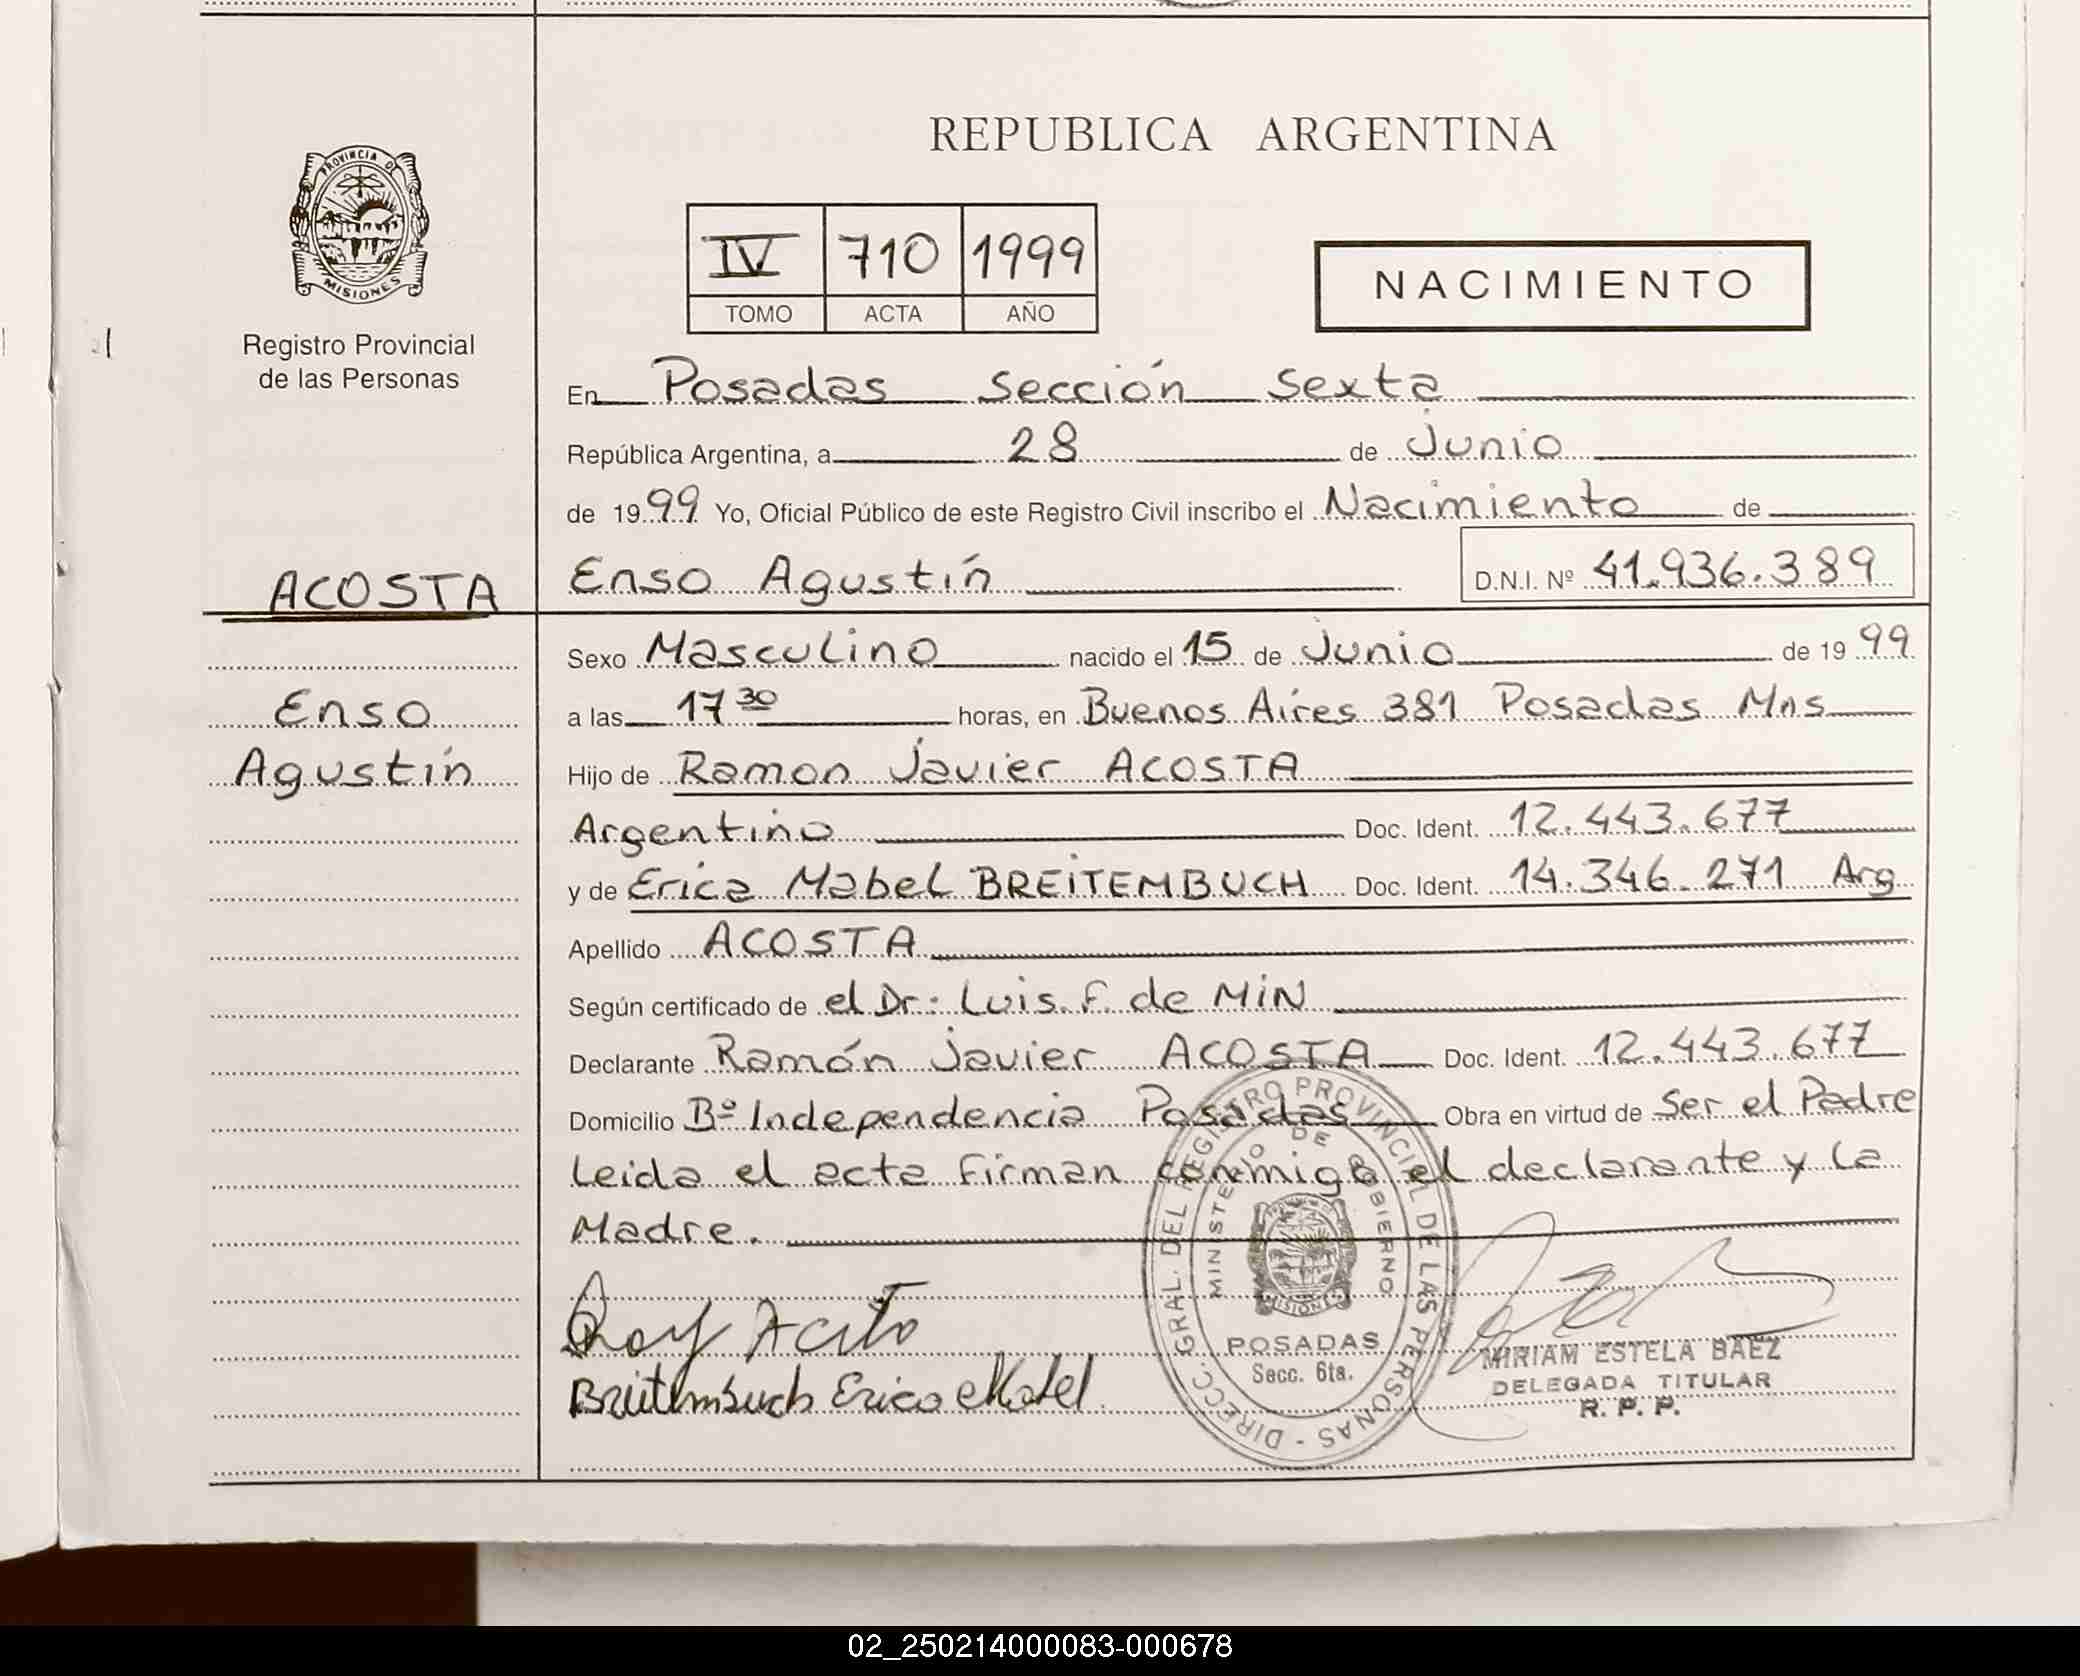 REPUBLICA ARGENTINA
PROVINCIA DE
MISIONES
Registro Provincial
de las Personas
IV 710 1999
TOMO ACTA AÑO
NACIMIENTO
En Posadas Sección Sexta
República Argentina, a 28 de Junio
de 1999 Yo, Oficial Público de este Registro Civil inscribo el Nacimiento de
ACOSTA
Enso Agustín D.N.I. Nº 41.936.389
Sexo Masculino nacido el 15 de Junio de 1999
Enso
a las 17 30 horas, en Buenos Aires 381 Posadas Mns
Agustín
Hijo de Ramon Javier ACOSTA
Argentino Doc. Ident. 12.443.677
y de Erica Mabel BREITEMBUCH Doc. Ident. 14.346.271 Arg
Apellido ACOSTA
Según certificado de el Dr: Luis F. de MIN
Declarante Ramón Javier ACOSTA Doc. Ident. 12.443.677
Domicilio Bº Independencia Posadas Obra en virtud de Ser el Padre
Leida el acta firman conmigo el declarante y La
Madre.
DIRECC. GRAL. DEL REGISTRO PROVINCIAL DE LAS PERSONAS -
MINISTERIO DE GOBIERNO
MISIONES
POSADAS
Secc. 6ta.
Breitembuch Erica Mabel
MIRIAM ESTELA BAEZ
DELEGADA TITULAR
R. P. P.
02_250214000083-000678